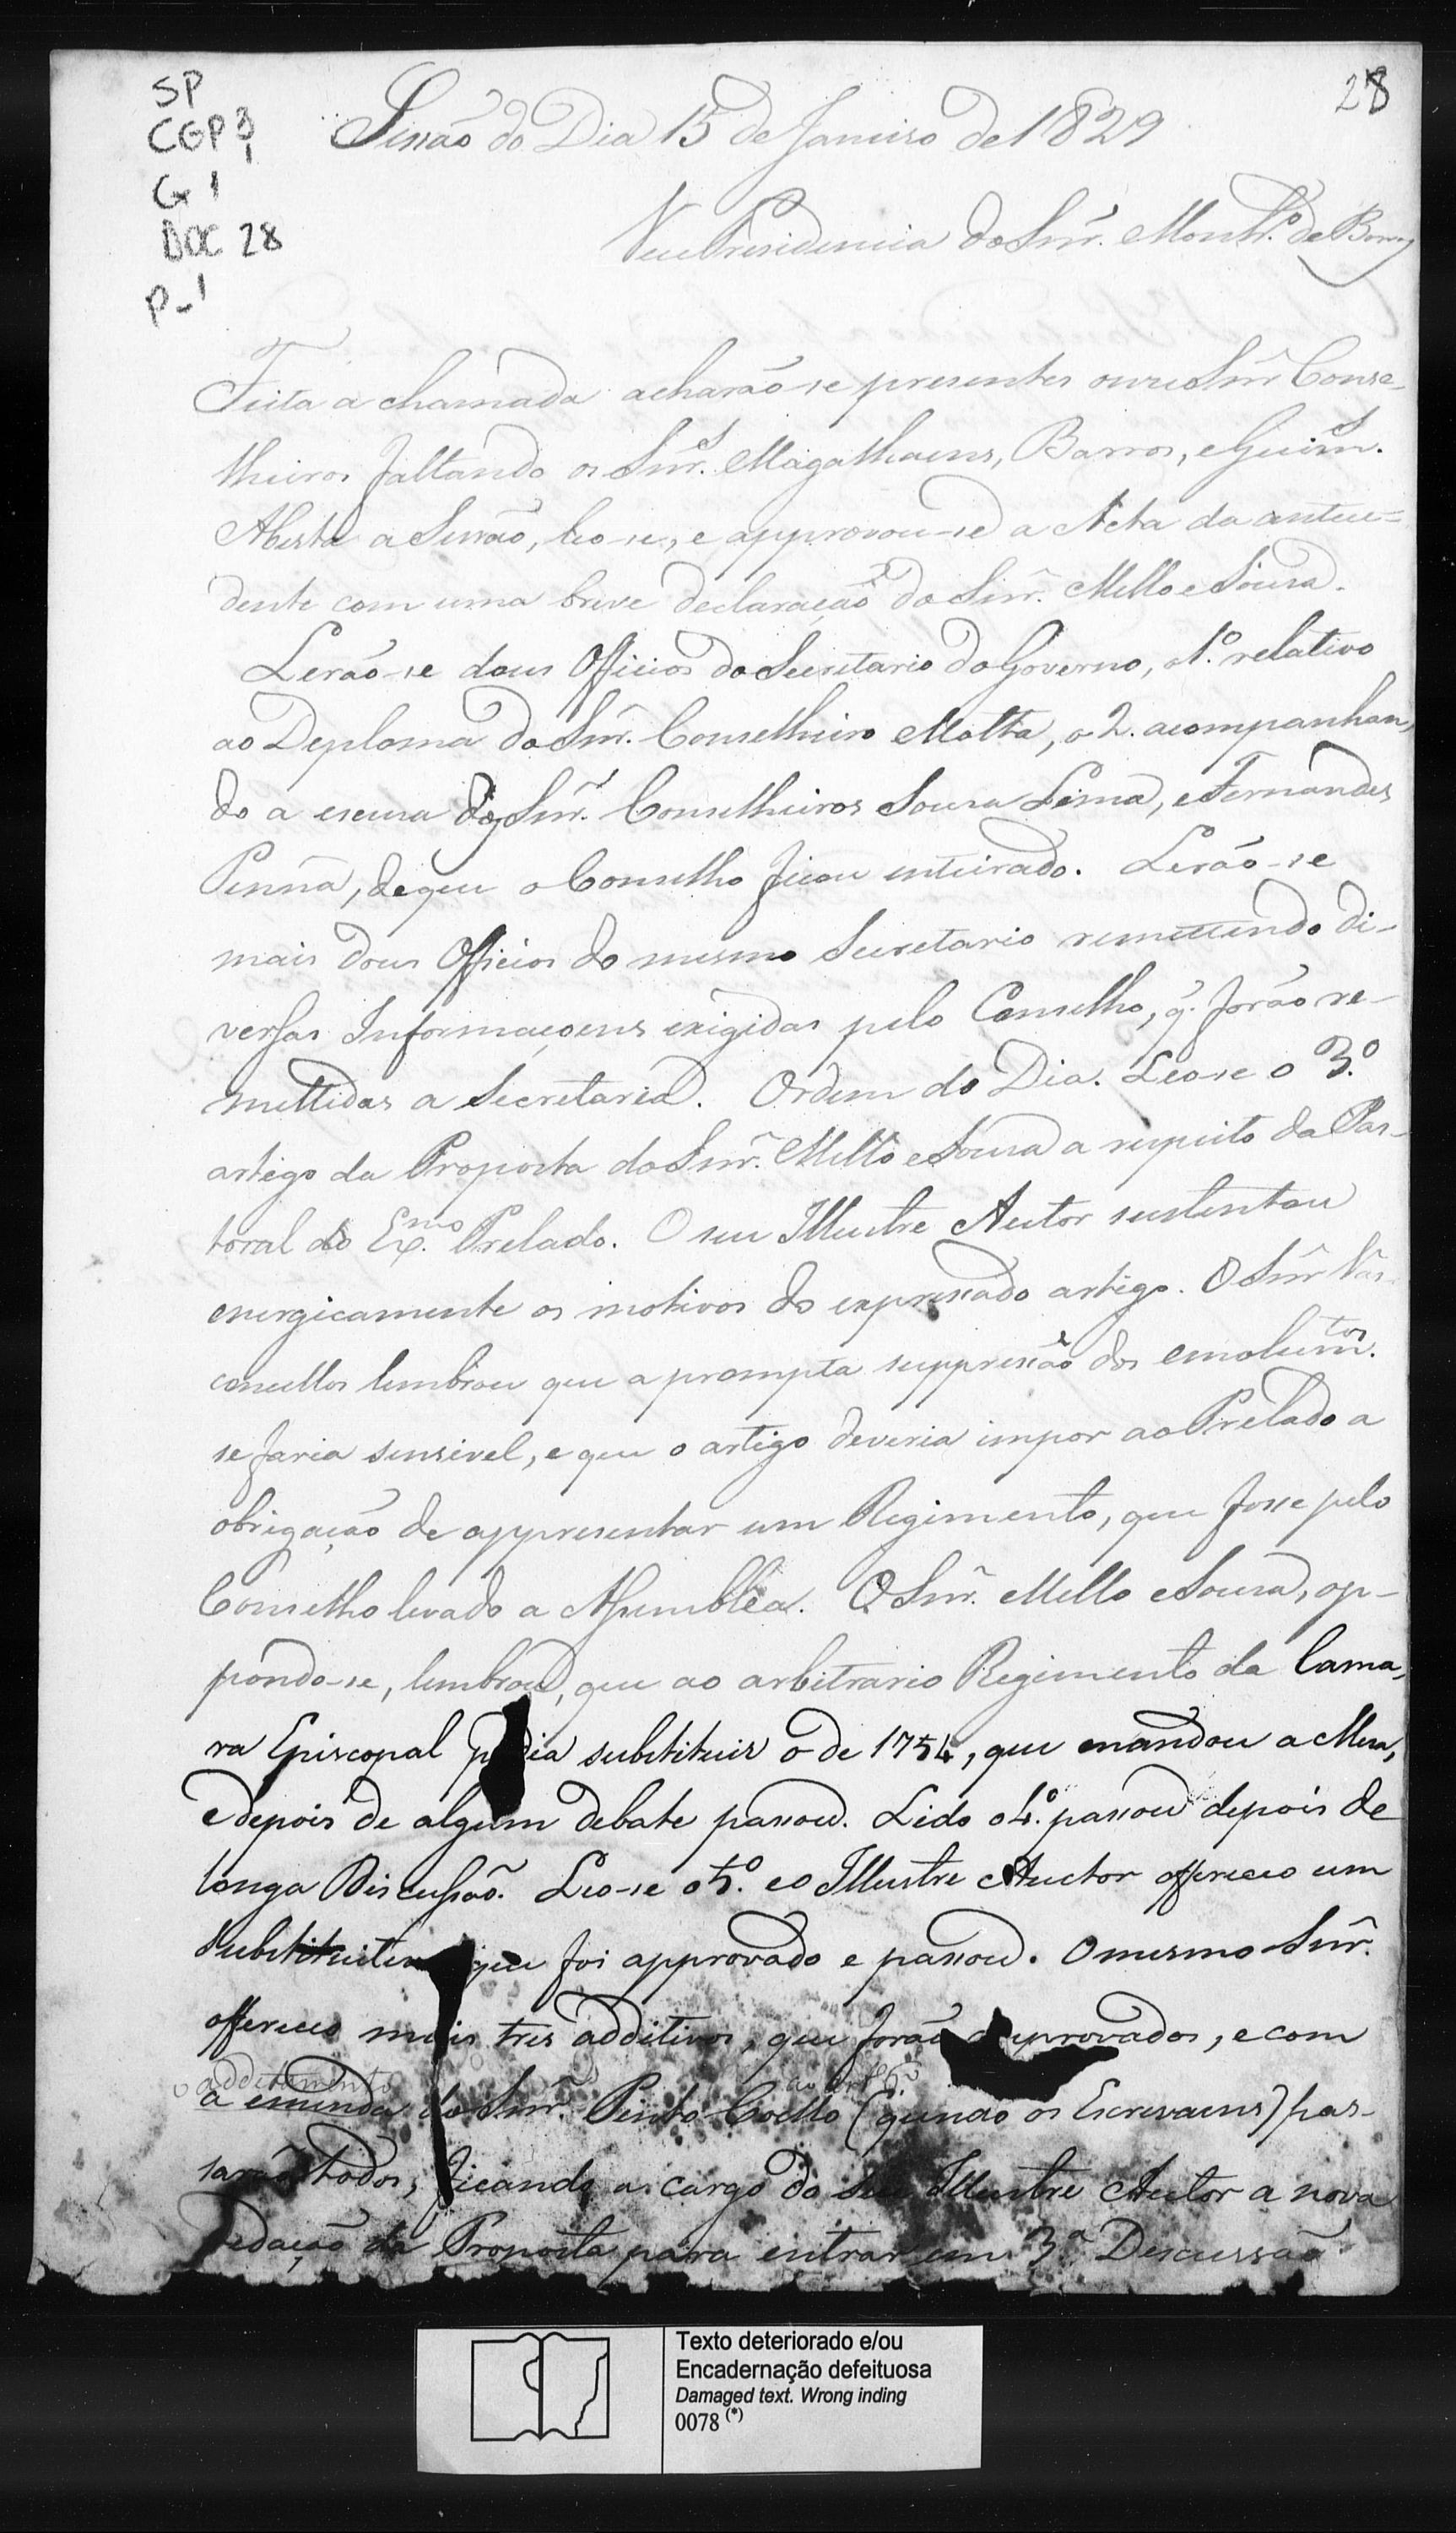 SP
CGP 3
1
G 1
DOC 28
P_1
28
Sessão do Dia 15 de Janeiro de 1829
Vice Presidencia do Snr. Montr.º de Barros
Feita a chamada acharão-se presentes onze Snr Conse-
lheiros faltando os Snr.s Magalhaens, Barros, e Guim.s
Aberta a Sessão, leo-se, e approvou-se a Acta da antece=
dente com uma breve declaração do Snr. Mello e Souza.
Lerão-se dous Officios do Secretario do Governo, o 1.º relativo
ao Deploma do Snr. Conselheiro Motta, o 2. acompanhan,
do a escusa dos Snr.s Conselheiros Souza Lima, e Fernandes
Penna, de que o Conselho ficou inteirado. Lerão-se
mais dous Officios do mesmo Secretario remettendo di-
versas Informaçoens exigidas pelo Conselho, q. forão re-
mettidas a Secretaria. Ordem do Dia. Leo-se o 3.º
artigo da Proposta do Snr. Mello e Souza a respeito da Pas-
toral do Ex.mo Prelado. O seu Illustre Autor sustentou
energicamente os motivos do expressado artigo. O Snr Vas-
concellos lembrou que a prompta suppressão dos emolum.tos
se faria sensivel, e que o artigo deveria impor ao Prelado a
obrigação de appresentar um Regimento, que fosse pelo
Conselho levado a Assemblea. O Snr. Mello e Souza, op-
pondo-se, lembrou, que ao arbitrario Regimento da Cama,
ra Episcopal podia substituir o de 1754, que mandou a Mesa,
e depois de algum debate passou. Lido o 4.º passou depois de
longa Discussão. Leo-se o 5.º e o Illustre Auctor offereceo um
substitutivo que foi approvado e passou. O mesmo Snr.
offereceo mais tres additivos, que forão approvados, e com
o additamento ao art 6º
a emenda do Snr. Pinto Coelho (quando os Escrivaens) pas-
sarão todos, ficando a cargo do seu Illustre Autor a nova
Redação da Proposta para entrar em 3.ª Discussão
Texto deteriorado e/ou
Encadernação defeituosa
Damaged text. Wrong inding
0078 (*)